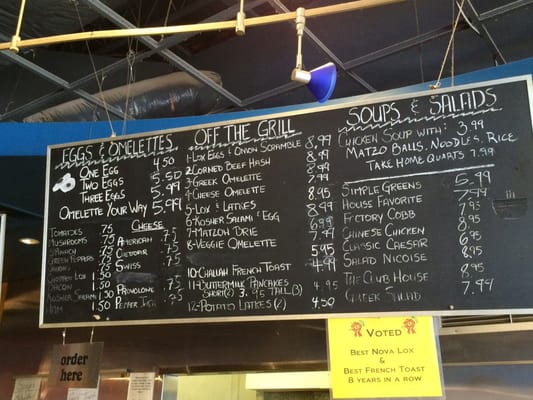 EGGS & OMELETTES
ONE EGG 4.50
TWO EGGS 5.50
THREE EGGS 5.99
OMELETTE YOUR WAY 5.99
CHEESE
TOMATOES .75
MUSHROOMS .75
SPINACH .75
GREEN PEPPERS .75
ONIONS
CHOPPED LOX 1.50
BACON 1.50
KOSHER SALAMI 1.50
HAM 1.50
AMERICAN .75
CHEDDAR .75
SWISS .75
PROVOLONE .75
PEPPER JACK .75
OFF THE GRILL
1-LOX EGGS & ONION SCRAMBLE 8.99
2-CORNED BEEF HASH 8.99
3-GREEK OMELETTE 8.99
4-CHEESE OMELETTE 7.99
5-LOX & LATKES 8.95
6-KOSHER SALAMI & EGG 8.99
7-MATZOH BRIE 6.99
8-VEGGIE OMELETTE 7.99
10-CHALLAH FRENCH TOAST 5.95
11-BUTTERMILK PANCAKES 4.99
SHORT(2) 3.95 TALL(3) 4.95
12-POTATO LATKES (2) 4.50
SOUPS & SALADS
CHICKEN SOUP WITH: 3.99
MATZO BALLS, NOODLES, RICE
TAKE HOME QUARTS 7.99
SIMPLE GREENS 5.99
HOUSE FAVORITE 7.99
FACTORY COBB 7.95
CHINESE CHICKEN 8.95
CLASSIC CAESAR 6.95
SALAD NICOISE 8.95
THE CLUB HOUSE 8.95
GREEK SALAD 7.99
order
here
VOTED
BEST NOVA LOX
&
BEST FRENCH TOAST
8 YEARS IN A ROW